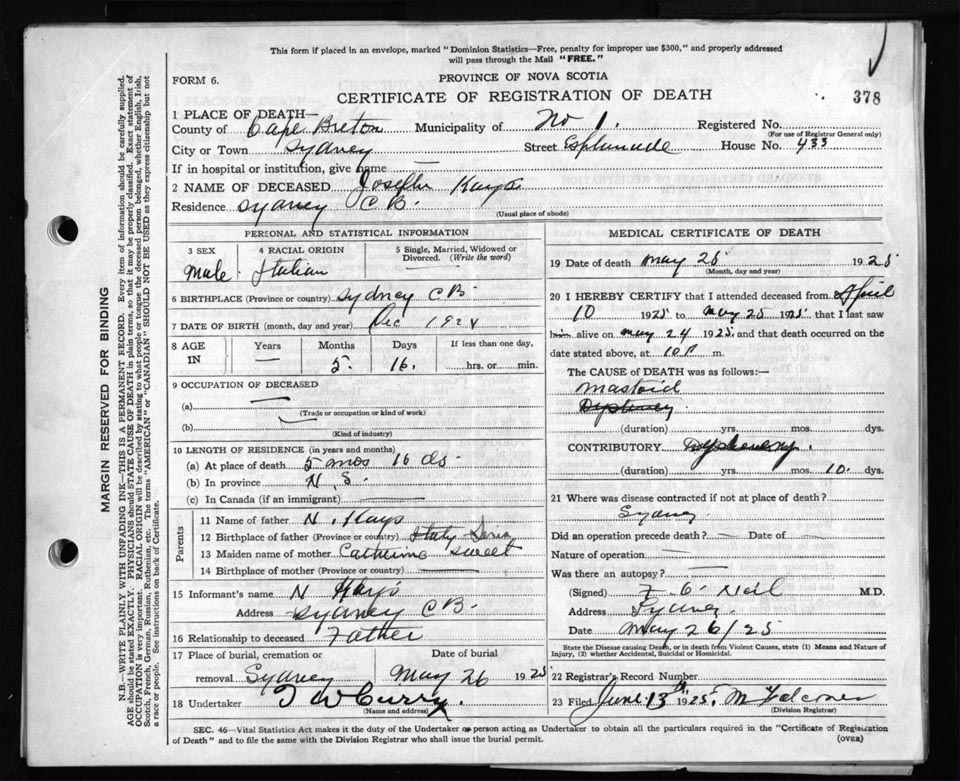 This form if placed in an envelope, marked "Dominion Statistics—Free, penalty for improper use $300," and properly addressed
will pass through the Mail "FREE."
FORM 6.
PROVINCE OF NOVA SCOTIA
CERTIFICATE OF REGISTRATION OF DEATH
378
1 PLACE OF DEATH—
County of Cape Breton Municipality of No 1. Registered No.
(For use of Registrar General only)
City or Town Sydney Street Esplanade House No. 433
If in hospital or institution, give name —
2 NAME OF DECEASED Joseph Kays
Residence Sydney C B.
(Usual place of abode)
PERSONAL AND STATISTICAL INFORMATION
3 SEX
Male
4 RACIAL ORIGIN
Italian
5 Single, Married, Widowed or
Divorced. (Write the word)
6 BIRTHPLACE (Province or country) Sydney C B
7 DATE OF BIRTH (month, day and year) Dec 1924
8 AGE IN
Years —
Months 5
Days 16.
If less than one day,
hrs. or min.
9 OCCUPATION OF DECEASED
(a) —
(Trade or occupation or kind of work)
(b)
(Kind of industry)
10 LENGTH OF RESIDENCE (in years and months)
(a) At place of death 5 mos 16 ds.
(b) In province N. S.
(c) In Canada (if an immigrant)
Parents
11 Name of father N. Kays
12 Birthplace of father (Province or country) Italy
13 Maiden name of mother Catherine Sweet
14 Birthplace of mother (Province or country)
15 Informant's name N Kays
Address Sydney C B.
16 Relationship to deceased Father
17 Place of burial, cremation or
removal Sydney
Date of burial
May 26 1925
18 Undertaker Curry.
(Name and address)
MEDICAL CERTIFICATE OF DEATH
19 Date of death May 25 1925
(Month, day and year)
20 I HEREBY CERTIFY that I attended deceased from April
10 1925 to May 25 1925 that I last saw
him alive on May 24 1925 and that death occurred on
date stated above, at 10 P m.
The CAUSE OF DEATH was as follows:—
Mastoid
(duration) yrs. mos. dys.
CONTRIBUTORY
(duration) yrs. mos. 10. dys.
21 Where was disease contracted if not at place of death?
Sydney
Did an operation precede death? — Date of —
Nature of operation —
Was there an autopsy? —
(Signed) Neil M.D.
Address Sydney
Date May 26/25
State the Disease causing Death, or in death from Violent Causes, state (1) Means and Nature of
Injury, (2) whether Accidental, Suicidal or Homicidal.
22 Registrar's Record Number
23 Filed June 13th 1925. M Falconer
(Division Registrar)
SEC. 46—Vital Statistics Act makes it the duty of the Undertaker or person acting as Undertaker to obtain all the particulars required in the "Certificate of Registration
of Death" and to file the same with the Division Registrar who shall issue the burial permit.
(OVER)
MARGIN RESERVED FOR BINDING
N.B.—WRITE PLAINLY WITH UNFADING INK—THIS IS A PERMANENT RECORD. Every item of information should be carefully supplied.
AGE should be stated EXACTLY. PHYSICIANS should STATE CAUSE OF DEATH in plain terms, so that it may be properly classified. Exact statement of
OCCUPATION is very important. RACIAL ORIGIN will be described by stating to what people or tongue the deceased person belonged, whether English, Irish,
Scotch, French, German, Russian, Ruthenian, etc. The terms "AMERICAN" or "CANADIAN" SHOULD NOT BE USED as they express citizenship but not
a race or people. See instructions on back of Certificate.